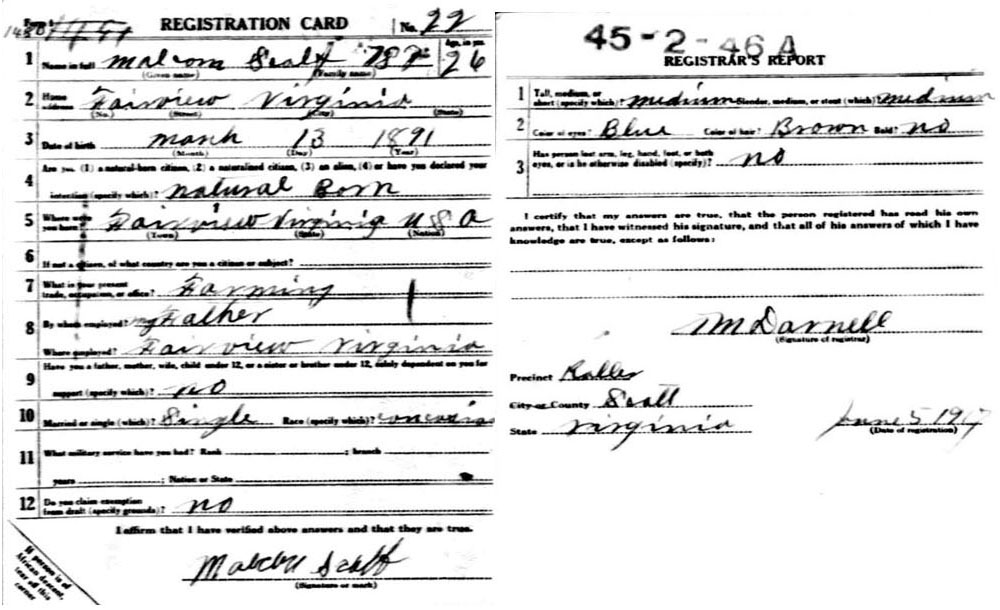 Form 1 REGISTRATION CARD No. 22
1 Name in full malcom Scalf Age, in yrs. 26
(Given name) (Family name)
2 Home address Fairview Virginia
(No.) (Street) (City) (State)
3 Date of birth march 13 1891
(Month) (Day) (Year)
Are you (1) a natural-born citizen, (2) a naturalized citizen, (3) an alien, (4) or have you declared your
4 intention (specify which)? natural Born
5 Where were you born? Fairview Virginia U S A
(Town) (State) (Nation)
6 If not a citizen, of what country are you a citizen or subject?
7 What is your present trade, occupation, or office? Farming
8 By whom employed? my Father
Where employed? Fairview Virginia
Have you a father, mother, wife, child under 12, or a sister or brother under 12, solely dependent on you for
9 support (specify which)? no
10 Married or single (which)? Single Race (specify which)?
11 What military service have you had? Rank ; branch
years ; Nation or State
12 Do you claim exemption from draft (specify grounds)? no
I affirm that I have verified above answers and that they are true.
Scalf
(Signature or mark)
If person is of
African descent,
tear off this
corner
45-2-46 A
REGISTRAR'S REPORT
1 Tall, medium, or short (specify which)? medium Slender, medium, or stout (which)? medium
2 Color of eyes? Blue Color of hair? Brown Bald? no
3 Has person lost arm, leg, hand, foot, or both eyes, or is he otherwise disabled (specify)? no
I certify that my answers are true, that the person registered has read his own
answers, that I have witnessed his signature, and that all of his answers of which I have
knowledge are true, except as follows:
Darnell
(Signature of registrar)
Precinct
City or County Scott
State Virginia June 5 1917
(Date of registration)